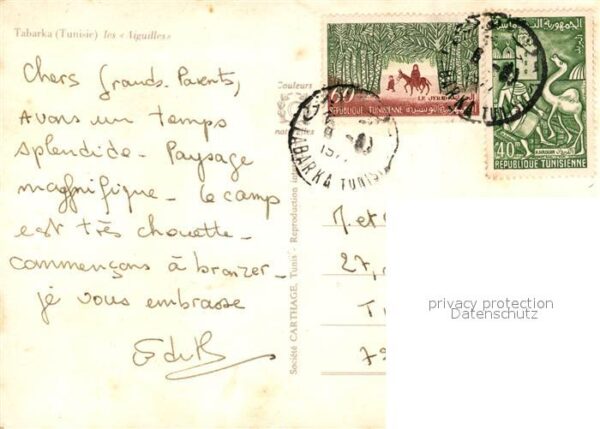 Tabarka (Tunisie) les « Aiguilles »
Chers Grands-Parents,
Avons un temps
splendide. Paysage
magnifique. Le camp
est très chouette.
commençons à bronzer.
je vous embrasse
Couleurs
naturelles
Société CARTHAGE, Tunis - Reproduction
60
REPUBLIQUE TUNISIENNE
TABARKA TUNISIE
الجمهورية التونسية
40
KAIROUAN
القيروان
REPUBLIQUE TUNISIENNE
M. et
27,
T
7
privacy protection
Datenschutz